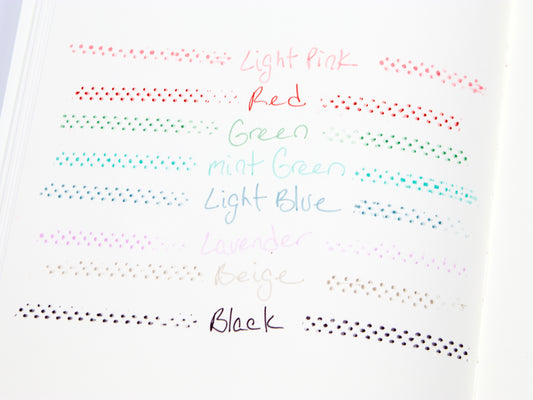 Light Pink
Red
Green
mint Green
Light Blue
Lavender
Beige
Black